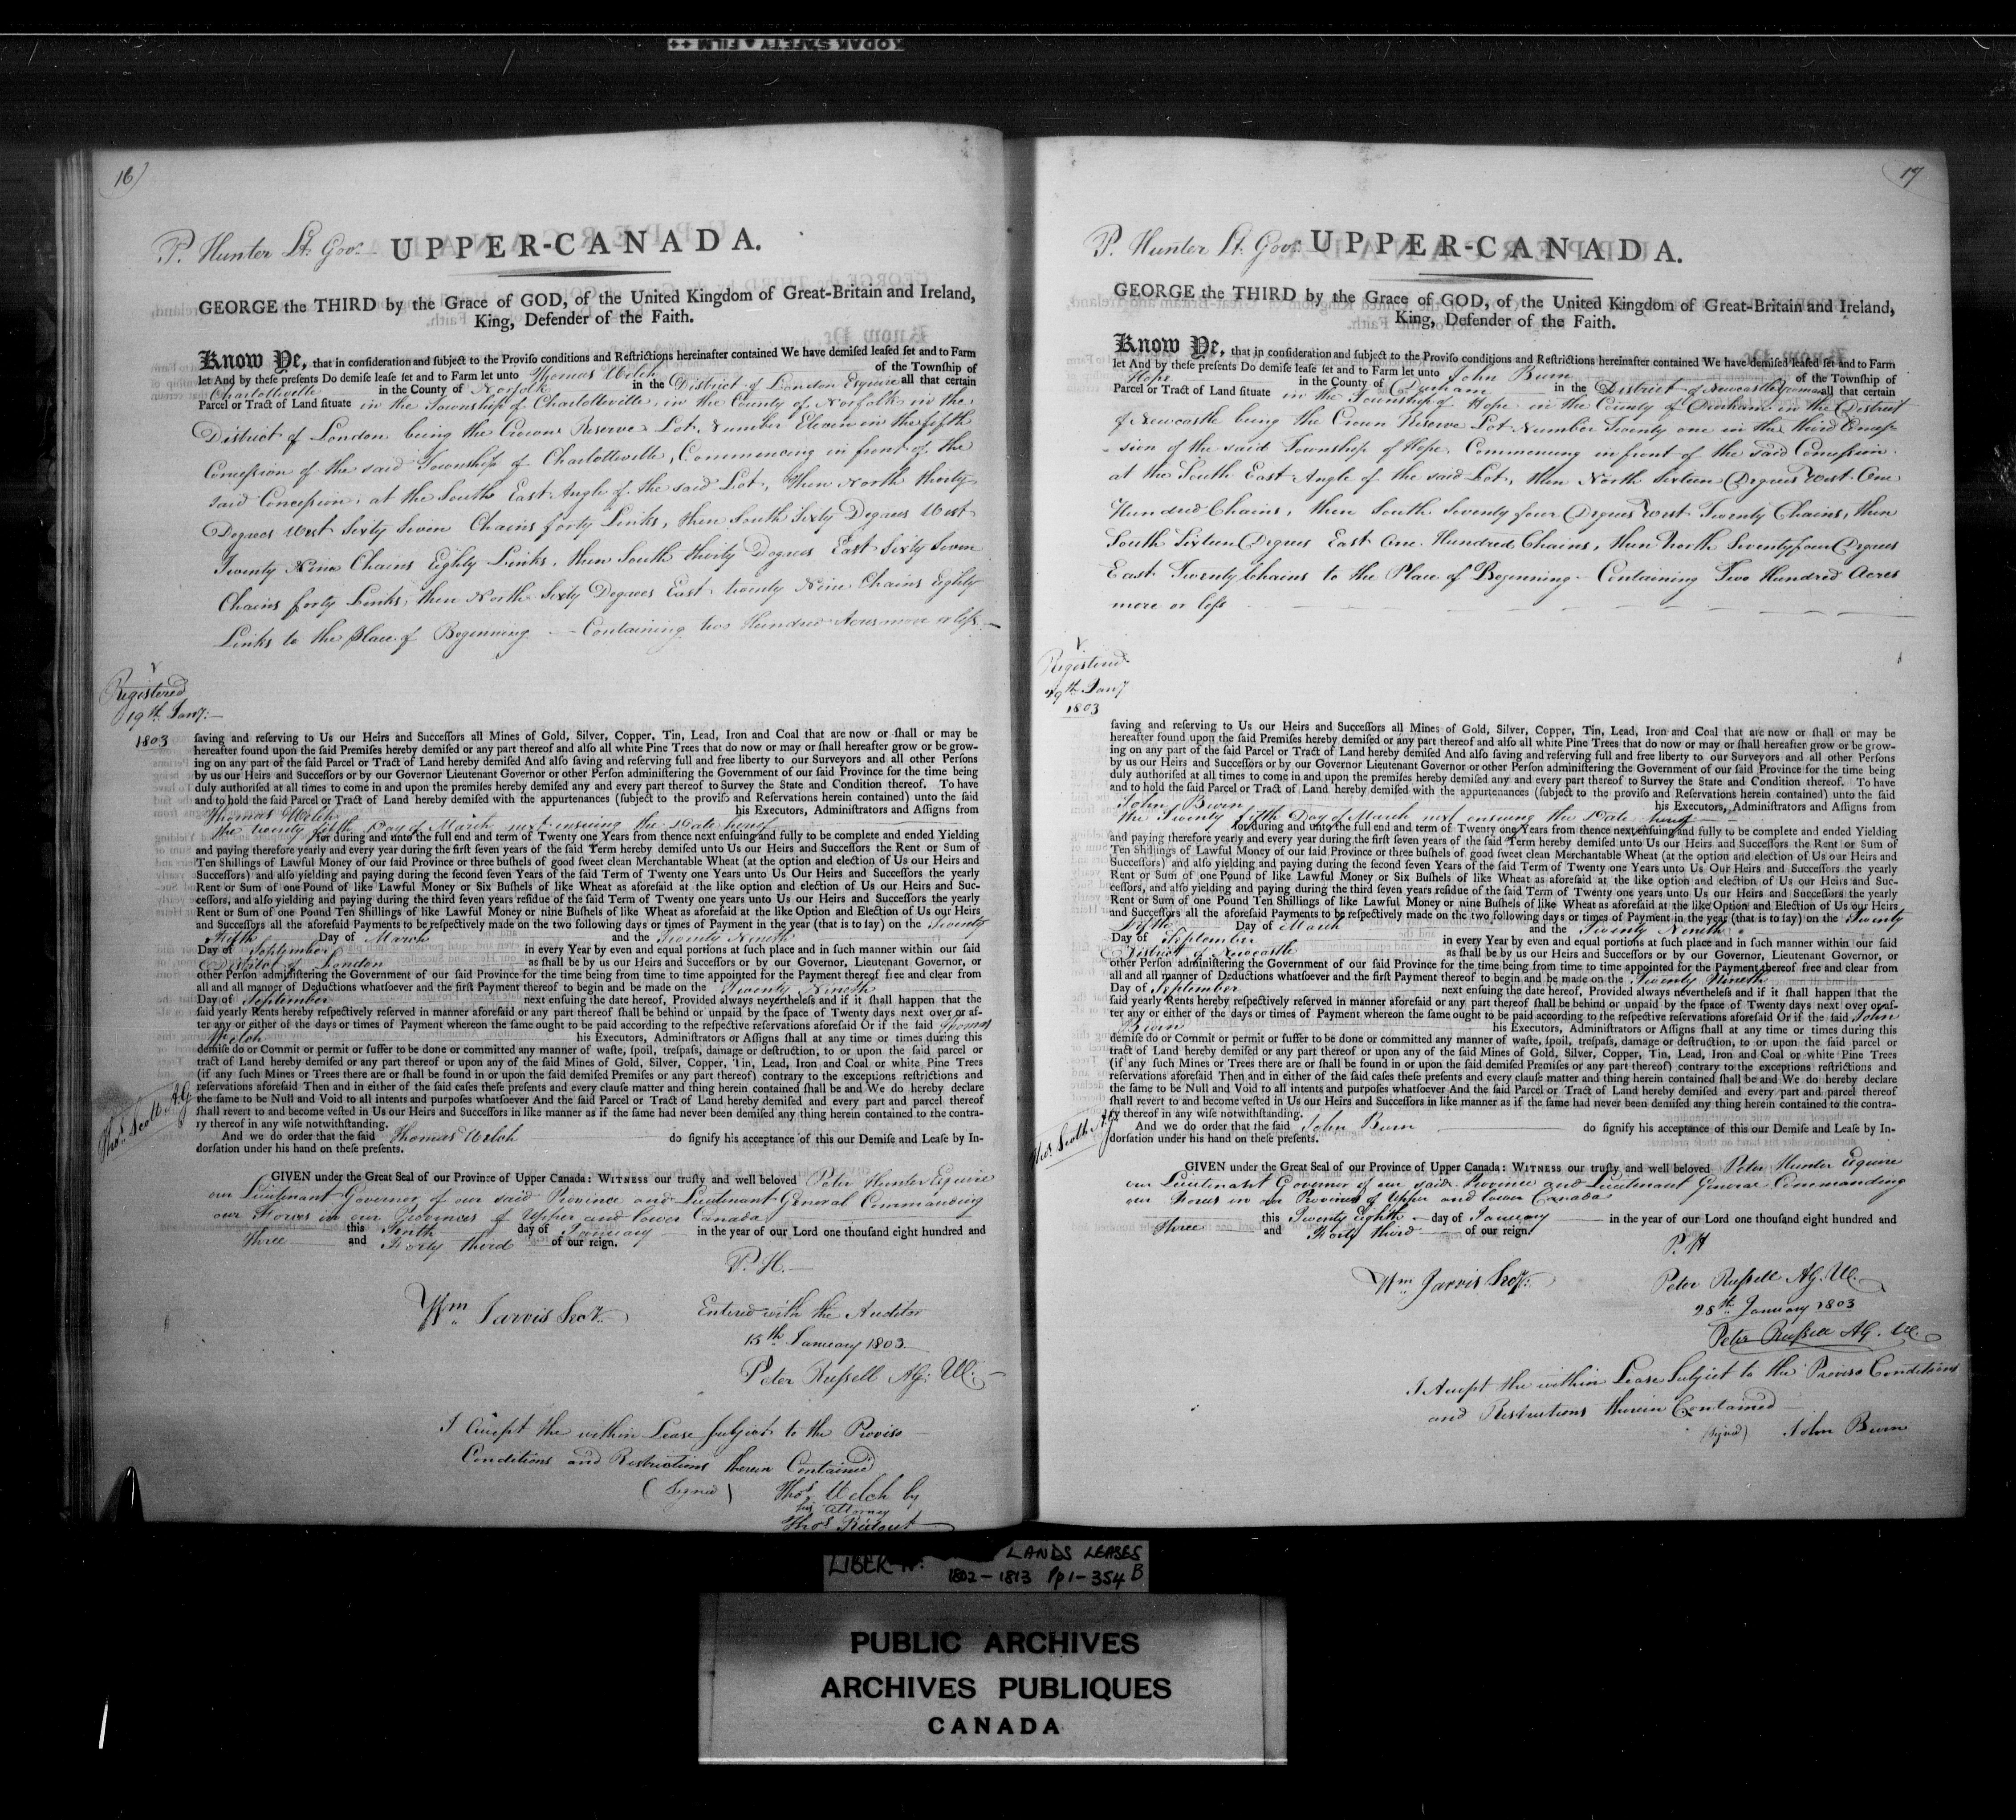 KODAK SAFETY A FILM ++
16)
P. Hunter Lt. Govr.
UPPER-CANADA.
GEORGE the THIRD by the Grace of GOD, of the United Kingdom of Great-Britain and Ireland,
King, Defender of the Faith.
Know Ye, that in consideration and subject to the Proviso conditions and Restrictions hereinafter contained We have demised leased set and to Farm
let And by these presents Do demise lease set and to Farm let unto Thomas Welch of the Township of
Charlotteville in the County of Norfolk in the District of London Esquire all that certain
Parcel or Tract of Land situate in the Township of Charlotteville, in the County of Norfolk in the
District of London being the Crown Reserve Lot, Number Eleven in the fifth
Concession of the said Township of Charlotteville, Commencing in front of the
said Concession, at the South East Angle of the said Lot, then North thirty
Degrees West Sixty Seven Chains forty Links, then South Sixty Degrees West
Twenty Nine Chains Eighty Links, then South thirty Degrees East Sixty Seven
Chains forty Links, then North Sixty Degrees East twenty Nine Chains Eighty
Links to the place of Beginning — Containing two Hundred Acres more or less —
Registered
19th Jany:
1803
saving and reserving to Us our Heirs and Successors all Mines of Gold, Silver, Copper, Tin, Lead, Iron and Coal that are now or shall or may be
hereafter found upon the said Premises hereby demised or any part thereof and also all white Pine Trees that do now or may or shall hereafter grow or be grow-
ing on any part of the said Parcel or Tract of Land hereby demised And also saving and reserving full and free liberty to our Surveyors and all other Persons
by us our Heirs and Successors or by our Governor Lieutenant Governor or other Person administering the Government of our said Province for the time being
duly authorised at all times to come in and upon the premises hereby demised any and every part thereof to Survey the State and Condition thereof. To have
and to hold the said Parcel or Tract of Land hereby demised with the appurtenances (subject to the proviso and Reservations herein contained) unto the said
Thomas Welch his Executors, Administrators and Assigns from
the twenty fifth Day of March next ensuing the Date hereof
for during and unto the full end and term of Twenty one Years from thence next ensuing and fully to be complete and ended Yielding
and paying therefore yearly and every year during the first seven years of the said Term hereby demised unto Us our Heirs and Successors the Rent or Sum of
Ten Shillings of Lawful Money of our said Province or three bushels of good sweet clean Merchantable Wheat (at the option and election of Us our Heirs and
Successors) and also yielding and paying during the second seven Years of the said Term of Twenty one Years unto Us Our Heirs and Successors the yearly
Rent or Sum of one Pound of like Lawful Money or Six Bushels of like Wheat as aforesaid at the like option and election of Us our Heirs and Suc-
cessors, and also yielding and paying during the third seven years residue of the said Term of Twenty one years unto Us our Heirs and Successors the yearly
Rent or Sum of one Pound Ten Shillings of like Lawful Money or nine Bushels of like Wheat as aforesaid at the like Option and Election of Us our Heirs
and Successors all the aforesaid Payments to be respectively made on the two following days or times of Payment in the year (that is to say) on the Twenty
Fifth Day of March and the Twenty Nineth
Day of September in every Year by even and equal portions at such place and in such manner within our said
District of London as shall be by us our Heirs and Successors or by our Governor, Lieutenant Governor, or
other Person administering the Government of our said Province for the time being from time to time appointed for the Payment thereof free and clear from
all and all manner of Deductions whatsoever and the first Payment thereof to begin and be made on the Twenty Nineth
Day of September next ensuing the date hereof, Provided always nevertheless and if it shall happen that the
said yearly Rents hereby respectively reserved in manner aforesaid or any part thereof shall be behind or unpaid by the space of Twenty days next over or af-
ter any or either of the days or times of Payment whereon the same ought to be paid according to the respective reservations aforesaid Or if the said Thomas
Welch his Executors, Administrators or Assigns shall at any time or times during this
demise do or Commit or permit or suffer to be done or committed any manner of waste, spoil, trespass, damage or destruction, to or upon the said parcel or
tract of Land hereby demised or any part thereof or upon any of the said Mines of Gold, Silver, Copper, Tin, Lead, Iron and Coal or white Pine Trees
(if any such Mines or Trees there are or shall be found in or upon the said demised Premises or any part thereof) contrary to the exceptions restrictions and
reservations aforesaid Then and in either of the said cases these presents and every clause matter and thing herein contained shall be and We do hereby declare
the same to be Null and Void to all intents and purposes whatsoever And the said Parcel or Tract of Land hereby demised and every part and parcel thereof
shall revert to and become vested in Us our Heirs and Successors in like manner as if the same had never been demised any thing herein contained to the contra-
ry thereof in any wise notwithstanding.
Thos. Scott A.G
And we do order that the said Thomas Welch do signify his acceptance of this our Demise and Lease by In-
dorsation under his hand on these presents.
GIVEN under the Great Seal of our Province of Upper Canada: WITNESS our trusty and well beloved Peter Hunter Esquire
our Lieutenant Governor of our said Province and Lieutenant General Commanding
our Forces in our Provinces of Upper and lower Canada
this Tenth day of January in the year of our Lord one thousand eight hundred and
Three and Forty third of our reign.
P. H.—
Wm. Jarvis Secy.
Entered with the Auditor
15th January 1803
Peter Russell AG: UC.
I Accept the within Lease subject to the Proviso
Conditions and Restrictions therein Contained
(Signed) Thos. Welch by
his attorney
Thos. Ridout
17
P. Hunter Lt. Govr.
UPPER-CANADA.
GEORGE the THIRD by the Grace of GOD, of the United Kingdom of Great-Britain and Ireland,
King, Defender of the Faith.
Know Ye, that in consideration and subject to the Proviso conditions and Restrictions hereinafter contained We have demised leased set and to Farm
let And by these presents Do demise lease set and to Farm let unto John Burn of the Township of
Hope in the County of Durham in the District of Newcastle Yeoman all that certain
Parcel or Tract of Land situate in the Township of Hope in the County of Durham in the District
of Newcastle being the Crown Reserve Lot Number Twenty one in the third Conces-
-sion of the said Township of Hope, Commencing in front of the said Concession
at the South East Angle of the said Lot, then North Sixteen Degrees West One
Hundred Chains, then South Seventy four Degrees West Twenty Chains, then
South Sixteen Degrees East One Hundred Chains, then North Seventy four Degrees
East Twenty Chains to the Place of Beginning — Containing Two Hundred Acres
more or less
Registered
29th Jany
1803
saving and reserving to Us our Heirs and Successors all Mines of Gold, Silver, Copper, Tin, Lead, Iron and Coal that are now or shall or may be
hereafter found upon the said Premises hereby demised or any part thereof and also all white Pine Trees that do now or may or shall hereafter grow or be grow-
ing on any part of the said Parcel or Tract of Land hereby demised And also saving and reserving full and free liberty to our Surveyors and all other Persons
by us our Heirs and Successors or by our Governor Lieutenant Governor or other Person administering the Government of our said Province for the time being
duly authorised at all times to come in and upon the premises hereby demised any and every part thereof to Survey the State and Condition thereof. To have
and to hold the said Parcel or Tract of Land hereby demised with the appurtenances (subject to the proviso and Reservations herein contained) unto the said
John Burn his Executors, Administrators and Assigns from
the Twenty fifth Day of March next ensuing the Date hereof
for during and unto the full end and term of Twenty one Years from thence next ensuing and fully to be complete and ended Yielding
and paying therefore yearly and every year during the first seven years of the said Term hereby demised unto Us our Heirs and Successors the Rent or Sum of
Ten Shillings of Lawful Money of our said Province or three bushels of good sweet clean Merchantable Wheat (at the option and election of Us our Heirs and
Successors) and also yielding and paying during the second seven Years of the said Term of Twenty one Years unto Us Our Heirs and Successors the yearly
Rent or Sum of one Pound of like Lawful Money or Six Bushels of like Wheat as aforesaid at the like option and election of Us our Heirs and Suc-
cessors, and also yielding and paying during the third seven years residue of the said Term of Twenty one years unto Us our Heirs and Successors the yearly
Rent or Sum of one Pound Ten Shillings of like Lawful Money or nine Bushels of like Wheat as aforesaid at the like Option and Election of Us our Heirs
and Successors all the aforesaid Payments to be respectively made on the two following days or times of Payment in the year (that is to say) on the Twenty
Fifth Day of March and the Twenty Nineth
Day of September in every Year by even and equal portions at such place and in such manner within our said
District of Newcastle as shall be by us our Heirs and Successors or by our Governor, Lieutenant Governor, or
other Person administering the Government of our said Province for the time being from time to time appointed for the Payment thereof free and clear from
all and all manner of Deductions whatsoever and the first Payment thereof to begin and be made on the Twenty Nineth
Day of September next ensuing the date hereof, Provided always nevertheless and if it shall happen that the
said yearly Rents hereby respectively reserved in manner aforesaid or any part thereof shall be behind or unpaid by the space of Twenty days next over or af-
ter any or either of the days or times of Payment whereon the same ought to be paid according to the respective reservations aforesaid Or if the said John
Burn his Executors, Administrators or Assigns shall at any time or times during this
demise do or Commit or permit or suffer to be done or committed any manner of waste, spoil, trespass, damage or destruction, to or upon the said parcel or
tract of Land hereby demised or any part thereof or upon any of the said Mines of Gold, Silver, Copper, Tin, Lead, Iron and Coal or white Pine Trees
(if any such Mines or Trees there are or shall be found in or upon the said demised Premises or any part thereof) contrary to the exceptions restrictions and
reservations aforesaid Then and in either of the said cases these presents and every clause matter and thing herein contained shall be and We do hereby declare
the same to be Null and Void to all intents and purposes whatsoever And the said Parcel or Tract of Land hereby demised and every part and parcel thereof
shall revert to and become vested in Us our Heirs and Successors in like manner as if the same had never been demised any thing herein contained to the contra-
ry thereof in any wise notwithstanding.
Thos. Scott A.G
And we do order that the said John Burn do signify his acceptance of this our Demise and Lease by In-
dorsation under his hand on these presents.
GIVEN under the Great Seal of our Province of Upper Canada: WITNESS our trusty and well beloved Peter Hunter Esquire
our Lieutenant Governor of our said Province and Lieutenant General Commanding
our Forces in our Provinces of Upper and lower Canada
this Twenty Eighth day of January in the year of our Lord one thousand eight hundred and
Three and Forty third of our reign.
P. H
Wm. Jarvis Secy.
Peter Russell AG. UC.
28th January 1803
Peter Russell AG. UC.
I Accept the within Lease Subject to the Proviso Conditions
and Restrictions therein Contained —
(signed) John Burn
LIBER LANDS LEASES
1802 - 1813 Pp 1 - 354 B
PUBLIC ARCHIVES
ARCHIVES PUBLIQUES
CANADA